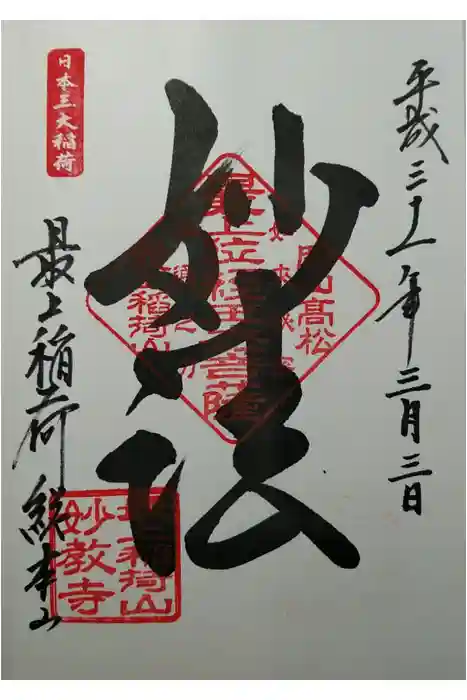 平成三十一年三月三日
妙法
日本三大稲荷
最上稲荷 総本山
高松
稲荷山
最上位経王大菩薩
最上稲荷山
妙教寺